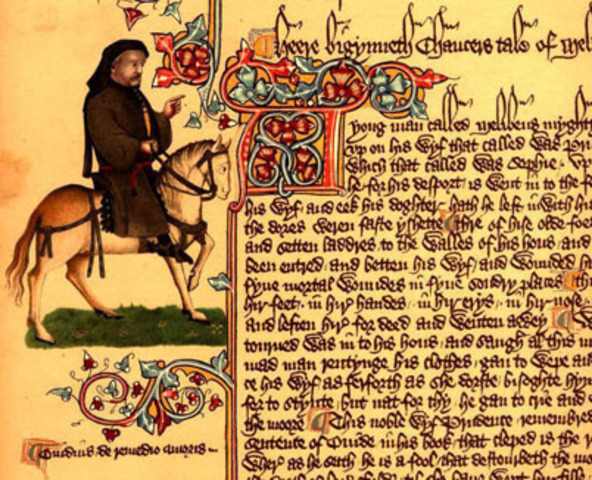 Heere bigynneth Chaucers tale of Mel
A yong man called Melibeus myght
vp on his wyf that called was Pru
which that called was Sophie · Vp
he for his desport is went in to the f
his wyf and eek his doghter hath he left inwith hi
the dores weren faste yshette Thre of hise olde foo
and setten laddres to the walles of his hous and
been entred and betten his wyf and wounded h
fyue mortal woundes in fyue sondry places Th
hir feet · in hir handes · in hir erys · in hir nose ·
and leften hir for deed and wenten awey W
tourned was in to his hous and saugh al this m
mad man rentynge his clothes gan to wepe an
ce his wyf as ferforth as she dorste bisoghte hym
for to stynte but nat for thy he gan to crie and w
the moore This noble wyf Prudence remembred
sentence of Ouide in his book that cleped is the r
Wher as he seith he is a fool that destourbeth the mo
Ouidius de remedio amoris